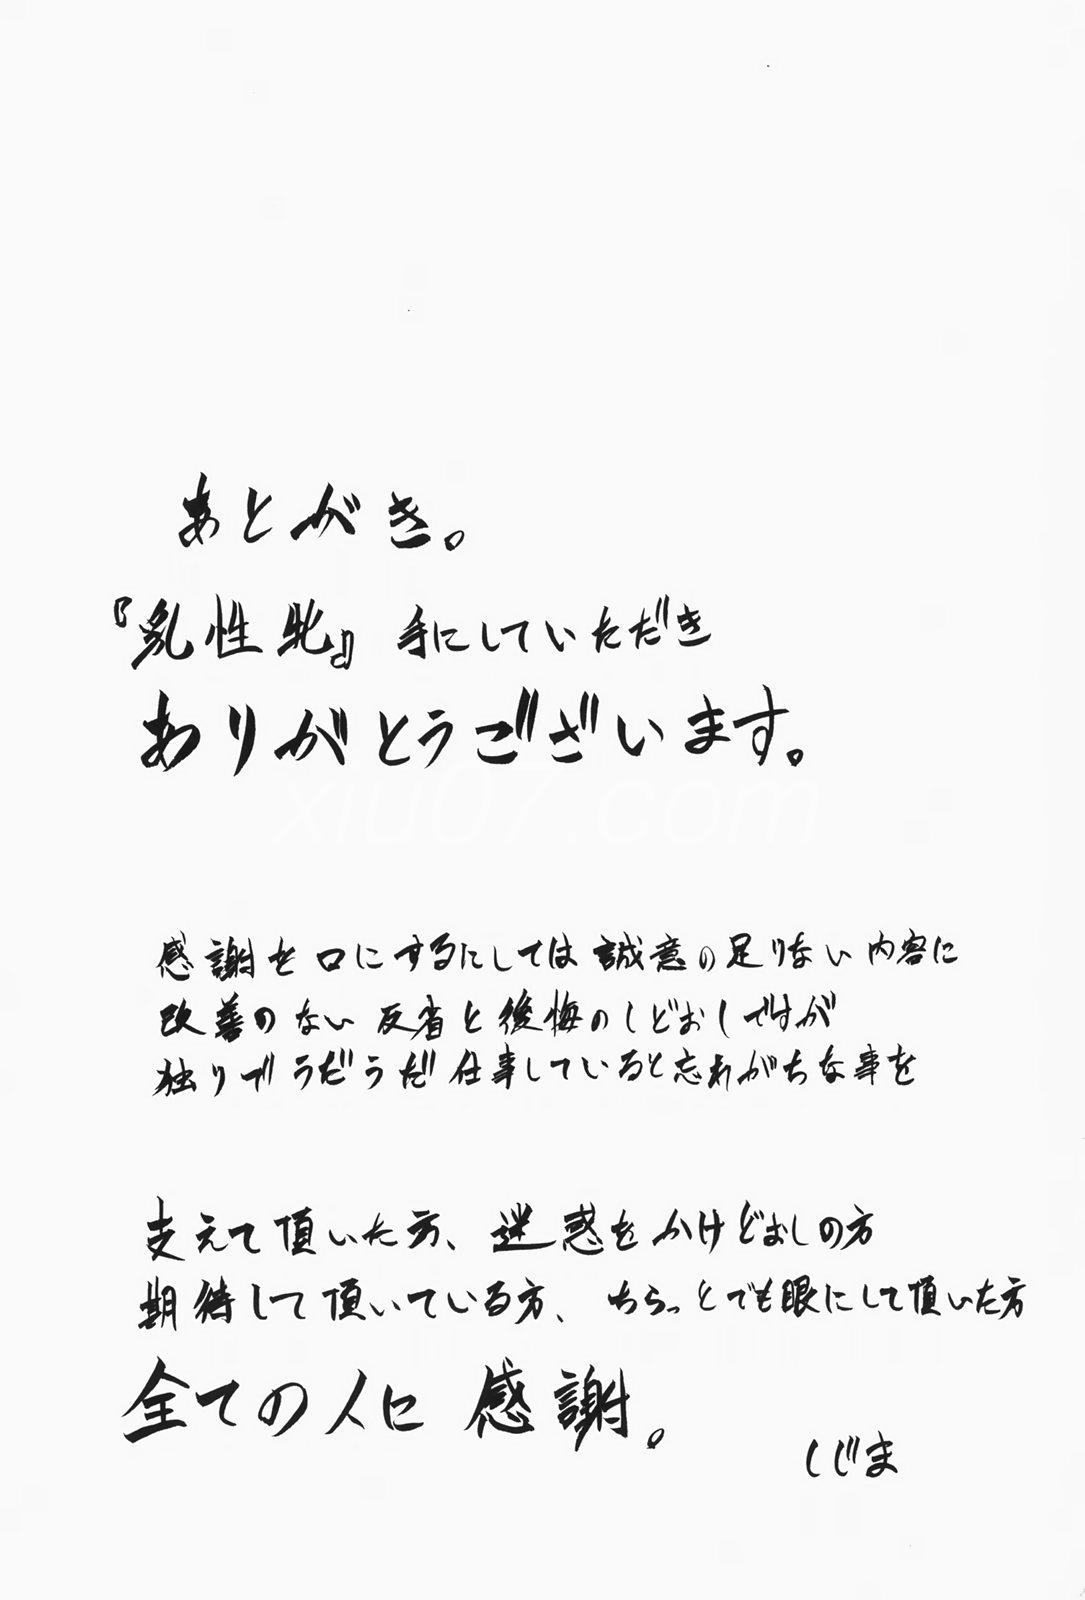 あとがき。
『乳性牝』手にしていただき
ありがとうございます。
xiu07.com
感謝を口にするにしては誠意の足りない内容に
改善のない反省と後悔のしどおしですが
独りでうだうだ仕事していると忘れがちな事を
支えて頂いた方、迷惑をかけどおしの方
期待して頂いている方、ちらっとでも眼にして頂いた方
全ての人に感謝。
しじま